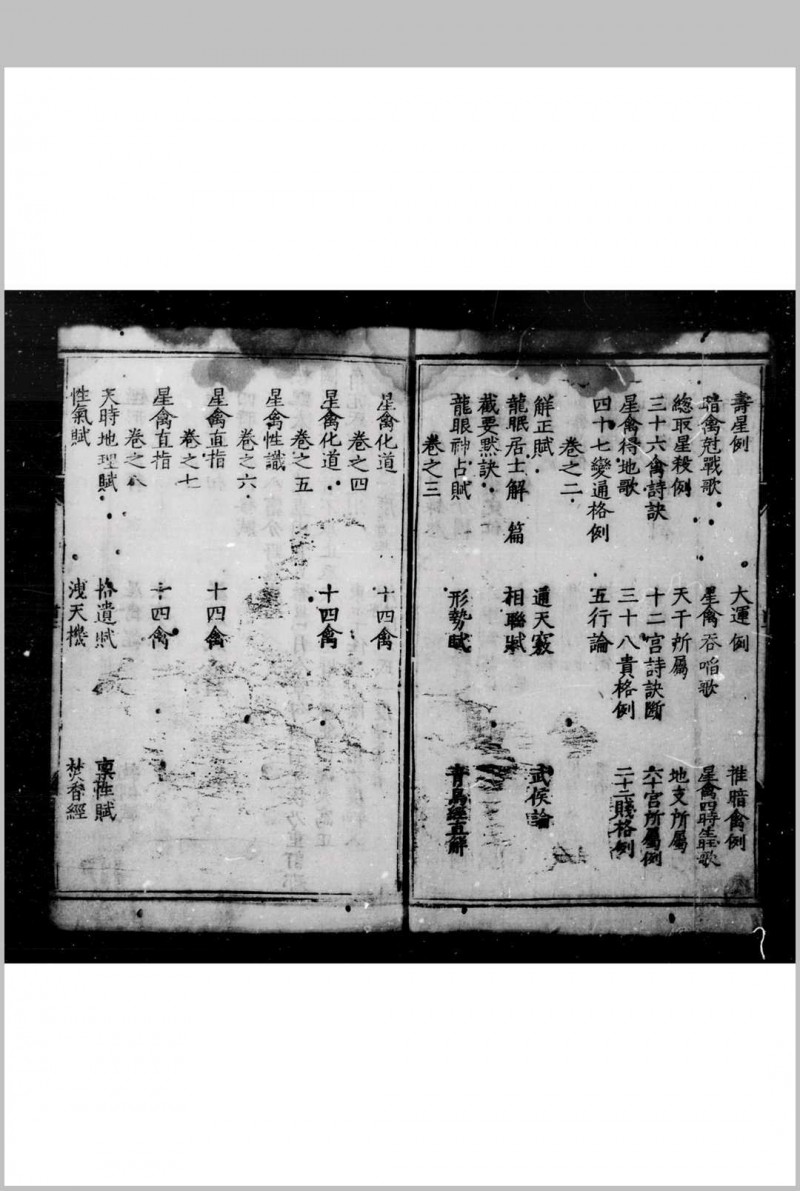 壽星例　大運例　推暗禽例
暗禽尅戰歌　星禽吞啗歌　星禽四時生旺歌
緫取星殺例　天干所屬　地支所屬
三十六禽詩訣　十二宮詩訣斷　六十宮所屬例
星禽得地歌　三十八貴格例　二十二賤格例
四十七變通格例　五行論
卷之二
觧正賦　通天竅　武侯論
龍眠居士解　篇　相聯賦
截要黙訣
龍眼神占賦　形勢賦　青烏經直觧
卷之三
星禽化道　十四禽
卷之四
星禽化道　十四禽
卷之五
星禽性識
卷之六
星禽直指　十四禽
卷之七
星禽直指　十四禽
卷之八
天時地理賦　拾遺賦　稟性賦
性氣賦　洩天機　焚香經